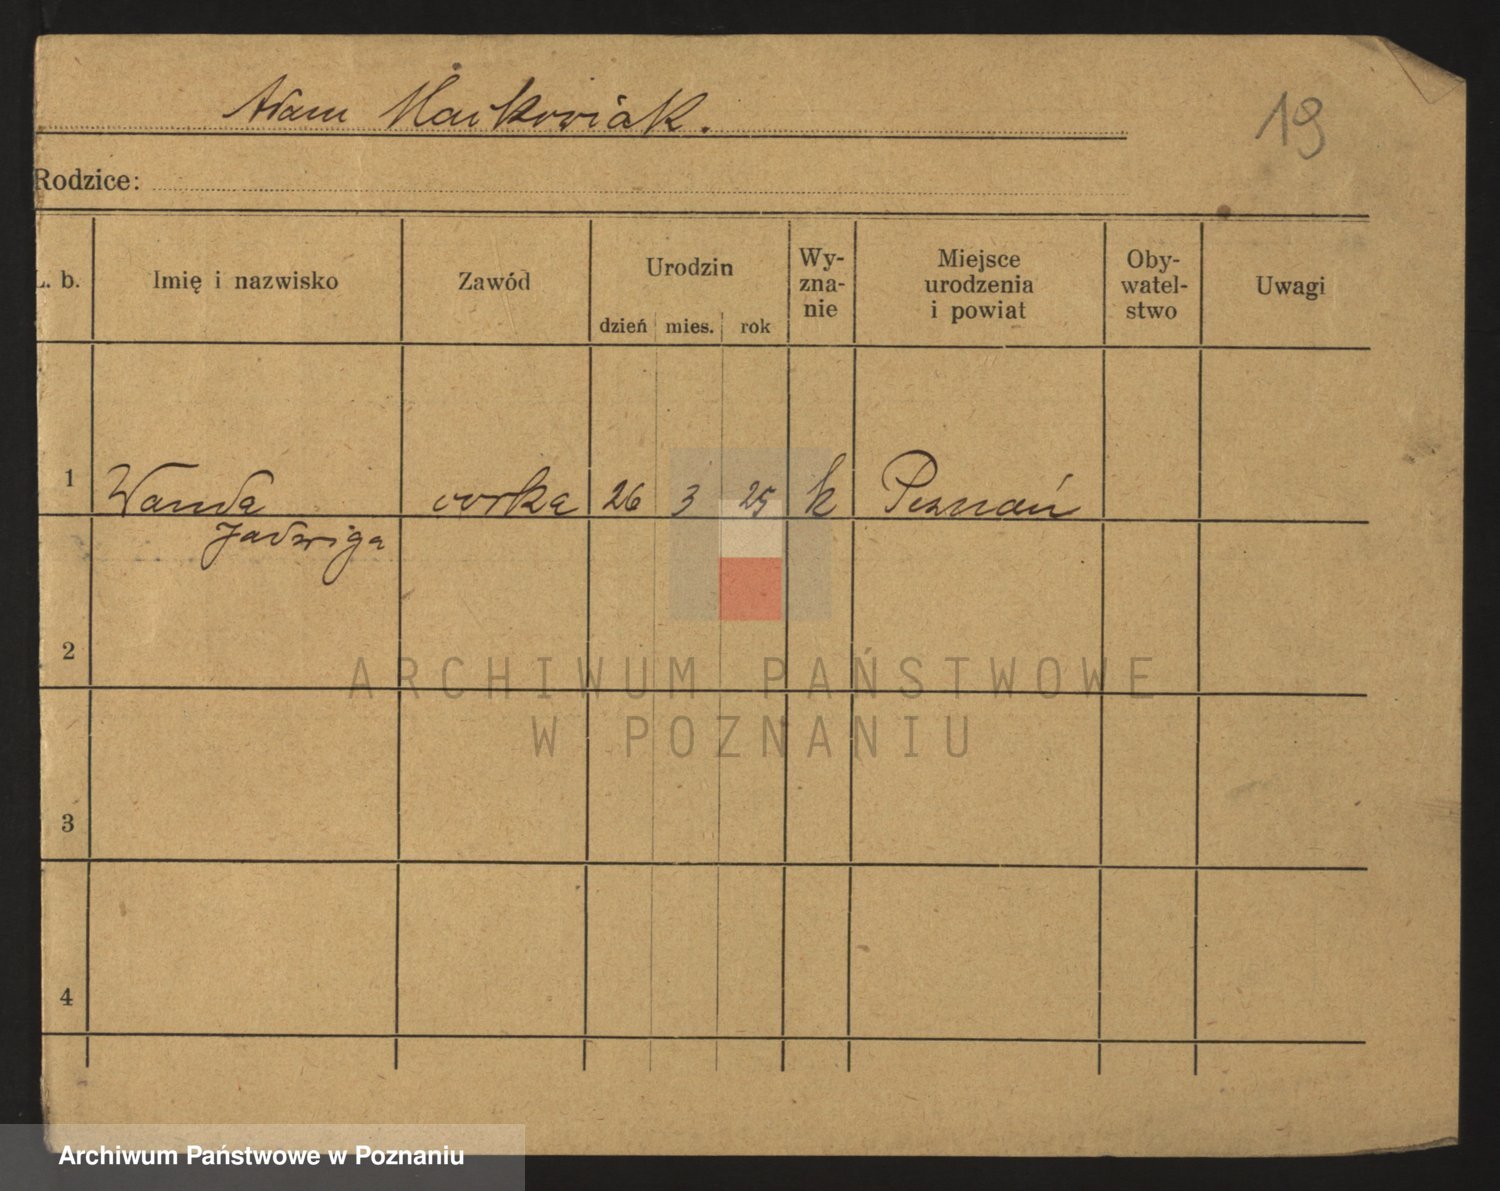 Adam Markowiak.
19
Rodzice:
L. b.
Imię i nazwisko
Zawód
Urodzin
dzień mies. rok
Wy-
zna-
nie
Miejsce
urodzenia
i powiat
Oby-
watel-
stwo
Uwagi
1 Wanda córka 26 3 25 k Poznań
Jadwiga
2
ARCHIWUM PAŃSTWOWE
W POZNANIU
3
4
Archiwum Państwowe w Poznaniu